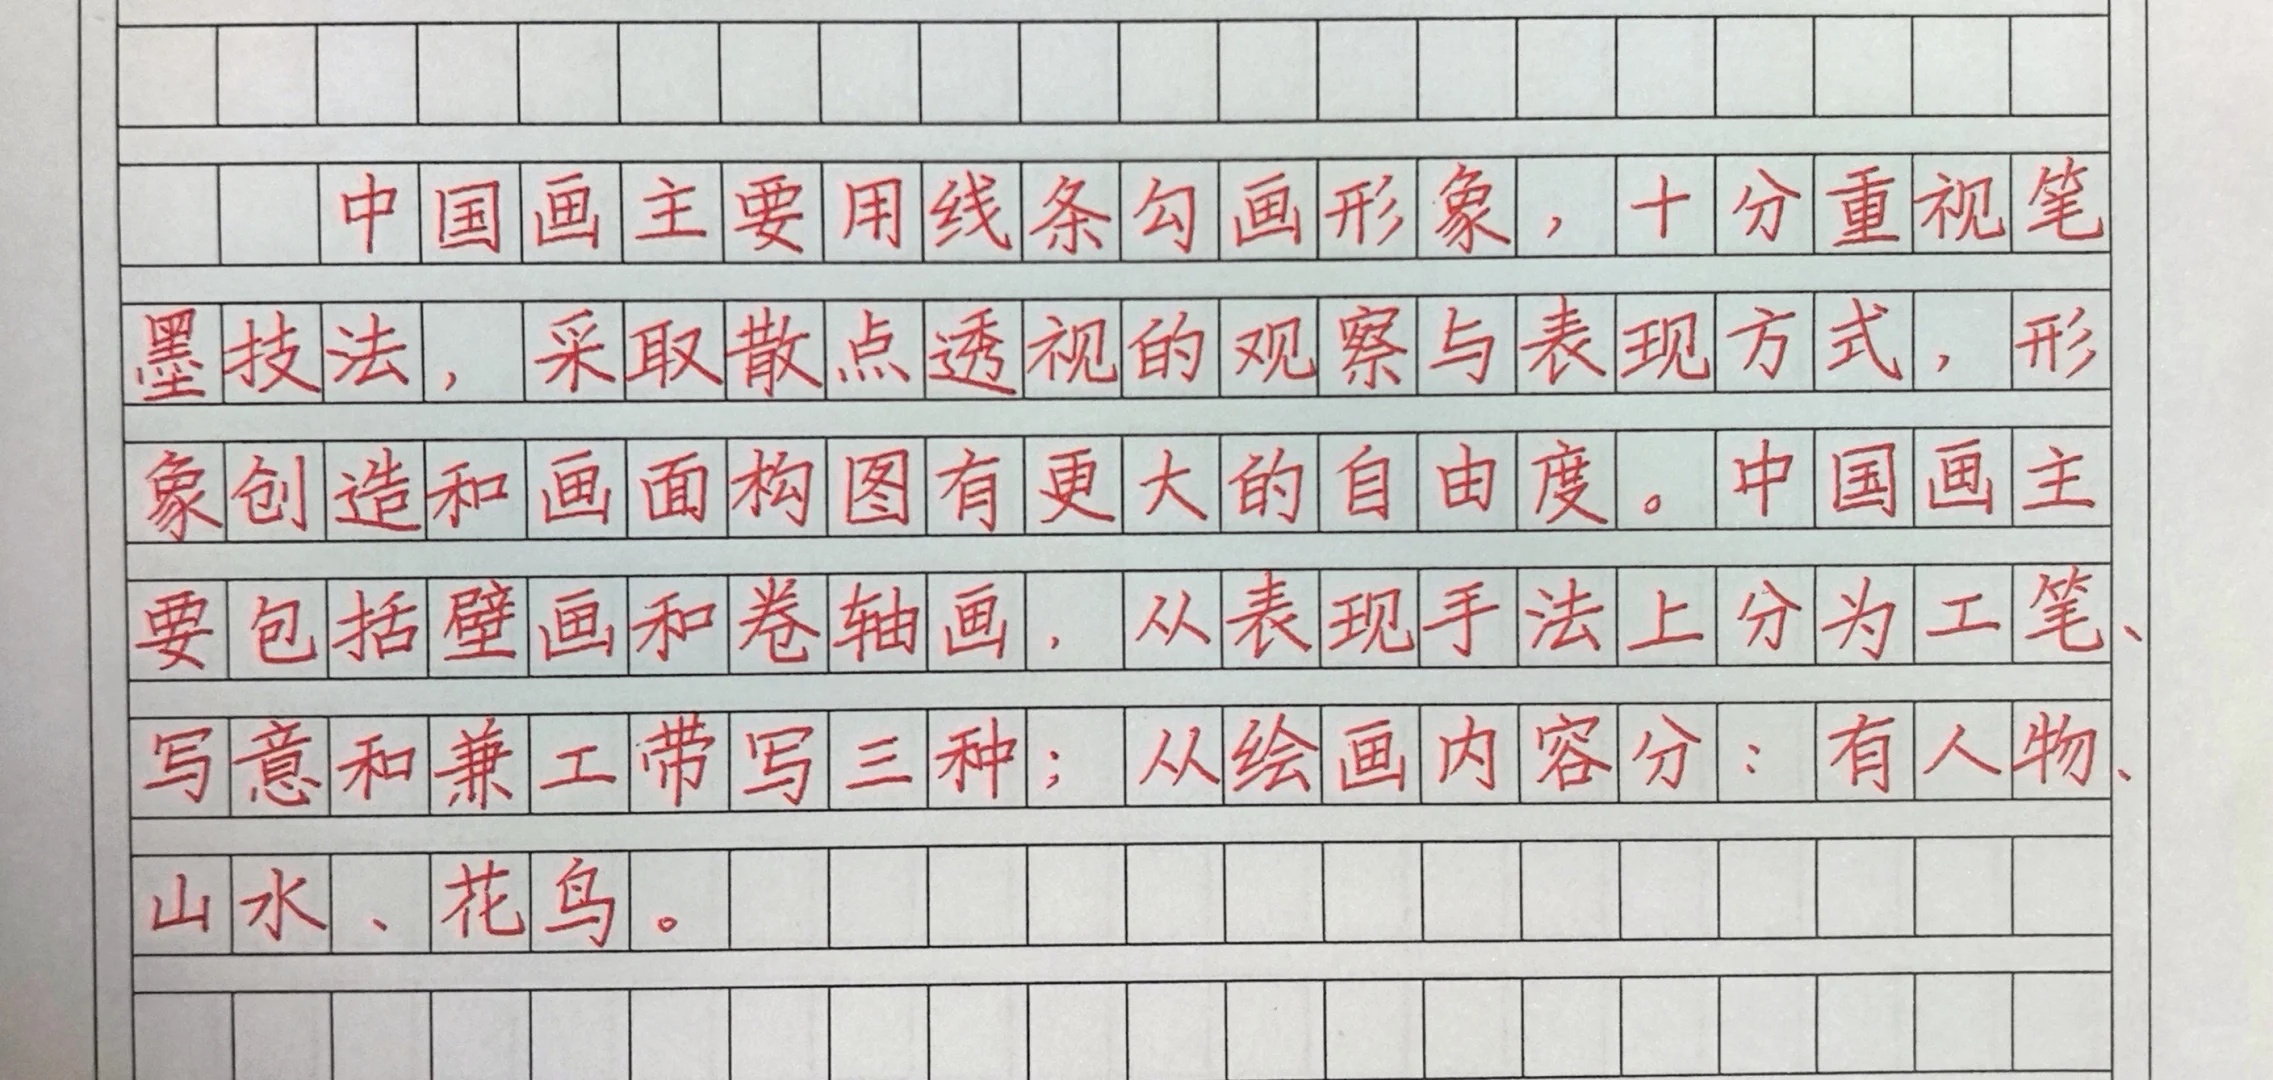 中国画主要用线条勾画形象，十分重视笔
墨技法，采取散点透视的观察与表现方式，形
象创造和画面构图有更大的自由度。中国画主
要包括壁画和卷轴画，从表现手法上分为工笔、
写意和兼工带写三种；从绘画内容分：有人物、
山水、花鸟。